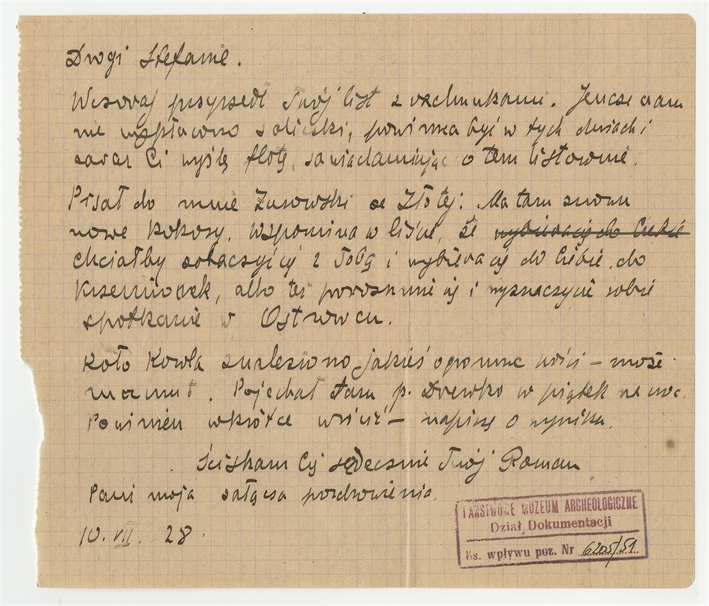 Drogi Stefanie.
Wczoraj przyszedł Twój list z rachunkami. Jeszcze nam
nie wypłacono zaliczki, powinna być w tych dniach i
zaraz Ci wyślę flotę, zawiadamiając o tem listownie.
Pisał do mnie Żurowski ze Złotej. Ma tam znowu
nowe kokosy. Wspomina w liście, że wybiera się do Ciebie
chciałby zobaczyć się z Tobą i wybiera się do Ciebie do
Krzemionek, albo też porozumie się i wyznaczycie sobie
spotkanie w Ostrowcu.
Koło Kowla znaleziono jakieś ogromne kości – może
mamut. Pojechał tam p. Drewko w piątek na noc.
Powinien wkrótce wrócić – napiszę o wyniku.
Ściskam Cię serdecznie Twój Roman
Pani moja załącza pozdrowienia.
10.VII. 28.
PAŃSTWOWE MUZEUM ARCHEOLOGICZNE
Dział Dokumentacji
Ks. wpływu poz. Nr 6205/51